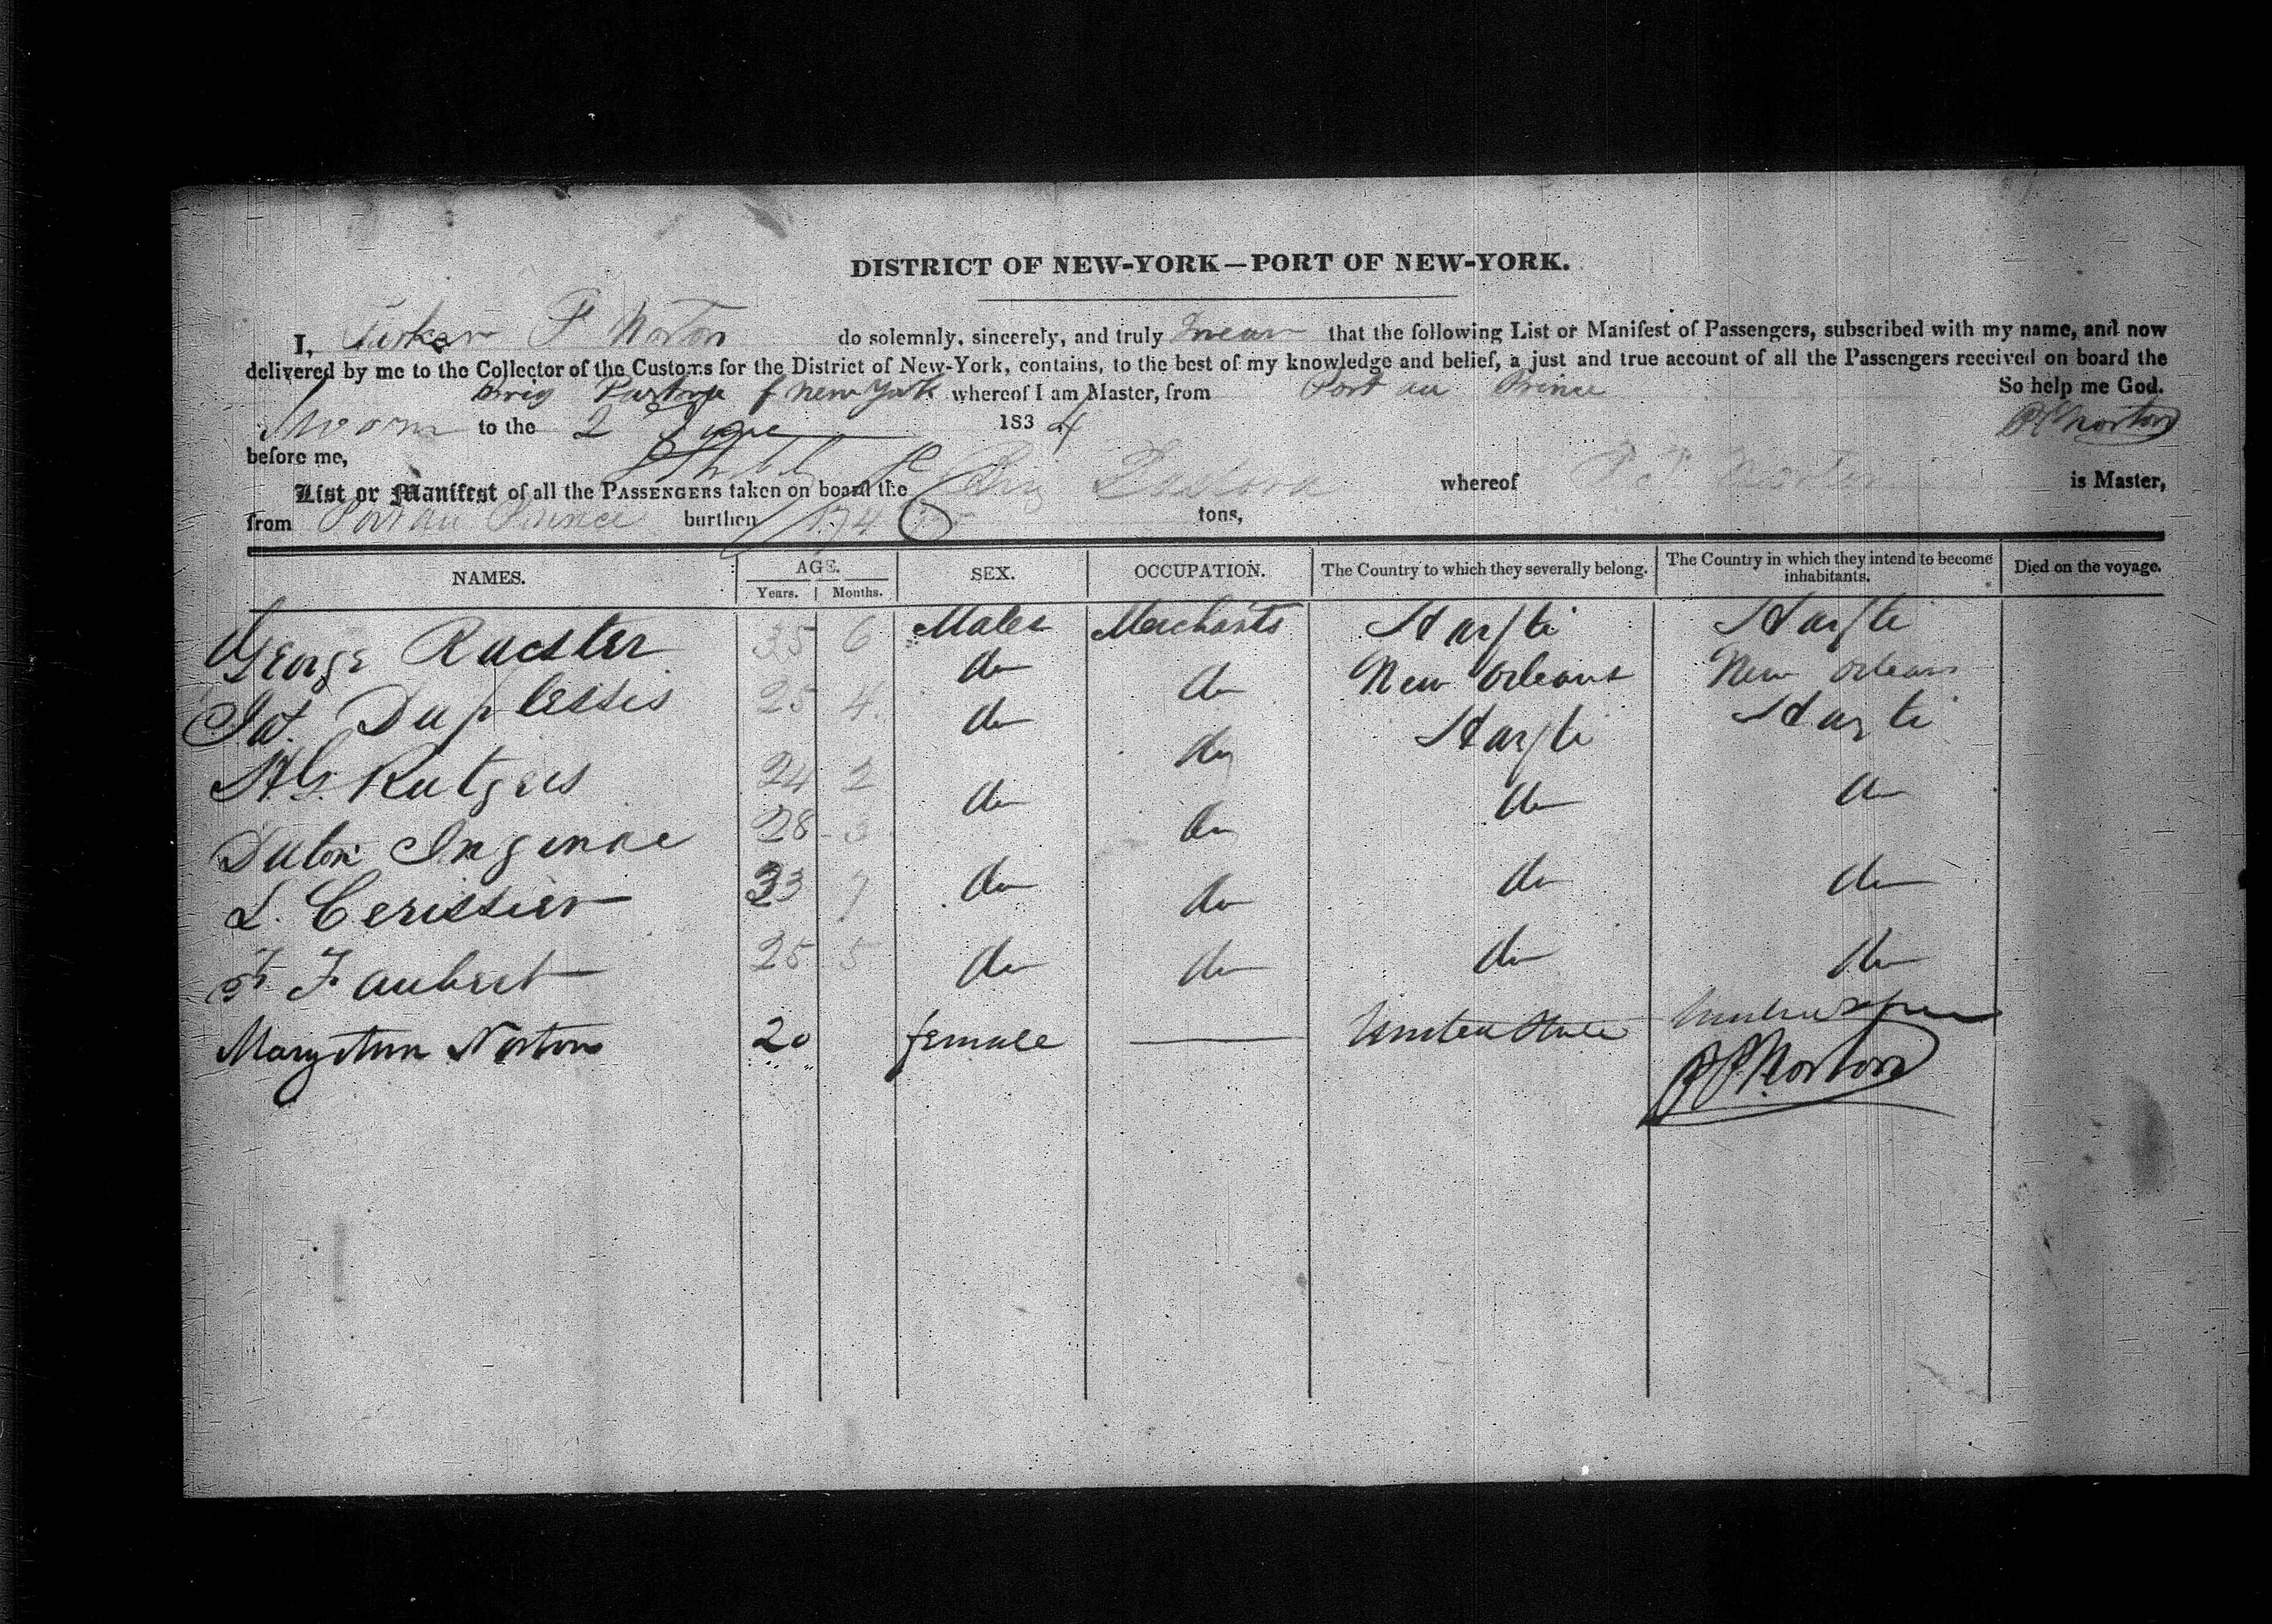 DISTRICT OF NEW-YORK—PORT OF NEW-YORK.
I, P Norton do solemnly, sincerely, and truly swear that the following List or Manifest of Passengers, subscribed with my name, and now
delivered by me to the Collector of the Customs for the District of New-York, contains, to the best of my knowledge and belief, a just and true account of all the Passengers received on board the
Brig of New York whereof I am Master, from Port au Prince So help me God.
Sworn to the 2 June 1834 Norton
before me,
List or Manifest of all the PASSENGERS taken on board the Brig whereof Norton is Master,
from Port au Prince burthen 174 tons,
NAMES. AGE. Years. Months. SEX. OCCUPATION. The Country to which they severally belong. The Country in which they intend to become inhabitants. Died on the voyage.
George Racster 35 6 Males Merchants Hayti Hayti
Duplessis 25 4 do do New Orleans New Orleans
H G Rutgers 24 2 do do Hayti Hayti
Inginac 28 3 do do do do
L. Cerissier 33 7 do do do do
F. Faubert 25 5 do do do do
Mary Ann Norton 20 female — United State
P P Norton